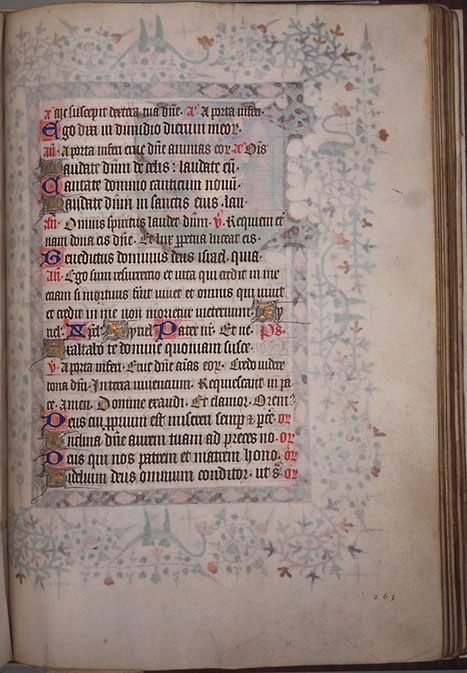 me suscepit dextera tua dñe. añ. A porta inferi.
Ego dixi in dimidio dierum meoꝝ.
añ. A porta inferi erue dñe animas eoꝝ. añ. Oı̄s
Laudate dñm de celis: laudate eū.
Cantate domino canticum nouū.
Laudate dñm in sanctis eius. lau
añ. Omnis spiritus laudet dñm. ℣. Requiem et̄
nam dona eis dñe. Et lux ꝑpetua luceat eis.
Benedictus dominus deus israel. quia.
añ. Ego sum resurrectio et uita qui credit in me
etiam si mortuus fuerit uiuet et omnis qui uiuit
et credit in me non morietur ineternum. Ky
riel. Xp̄el. Kyriel. Pater nr̄. Et ne. Ps.
Exaltabo te domine quoniam susce.
℣. A porta inferi. Erue dñe aīas eoꝝ. Credo uidere
bona dñi. In terra uiuencium. Requiescant in pa
ce. Amen. Domine exaudi. Et clamor. Orem⁹
Deus cui ꝓprium est misereri semꝑ et ꝑcē. oꝝ
Inclina dñe aurem tuam ad preces no. oꝝ
Deus qui nos patrem et matrem hono. oꝝ
Fidelium deus omnium conditor. ut sͣ. oꝝ
263